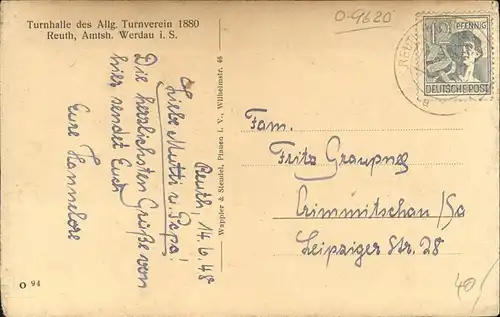 Turnhalle des Allg. Turnverein 1880
Reuth, Amtsh. Werdau i. S.
O-9620
12 PFENNIG
DEUTSCHE POST
Reuth, 14.6.48
Liebe Mutti u. Papa!
Die herzlichsten Grüße von
hier sendet Euch
Eure Hannelore
Wappler & Steudel, Plauen i. V., Wilhelmstr. 46
Fam.
Fritz Graupner
Crimmitschau/Sa
Leipziger Str. 28
40/
O 94